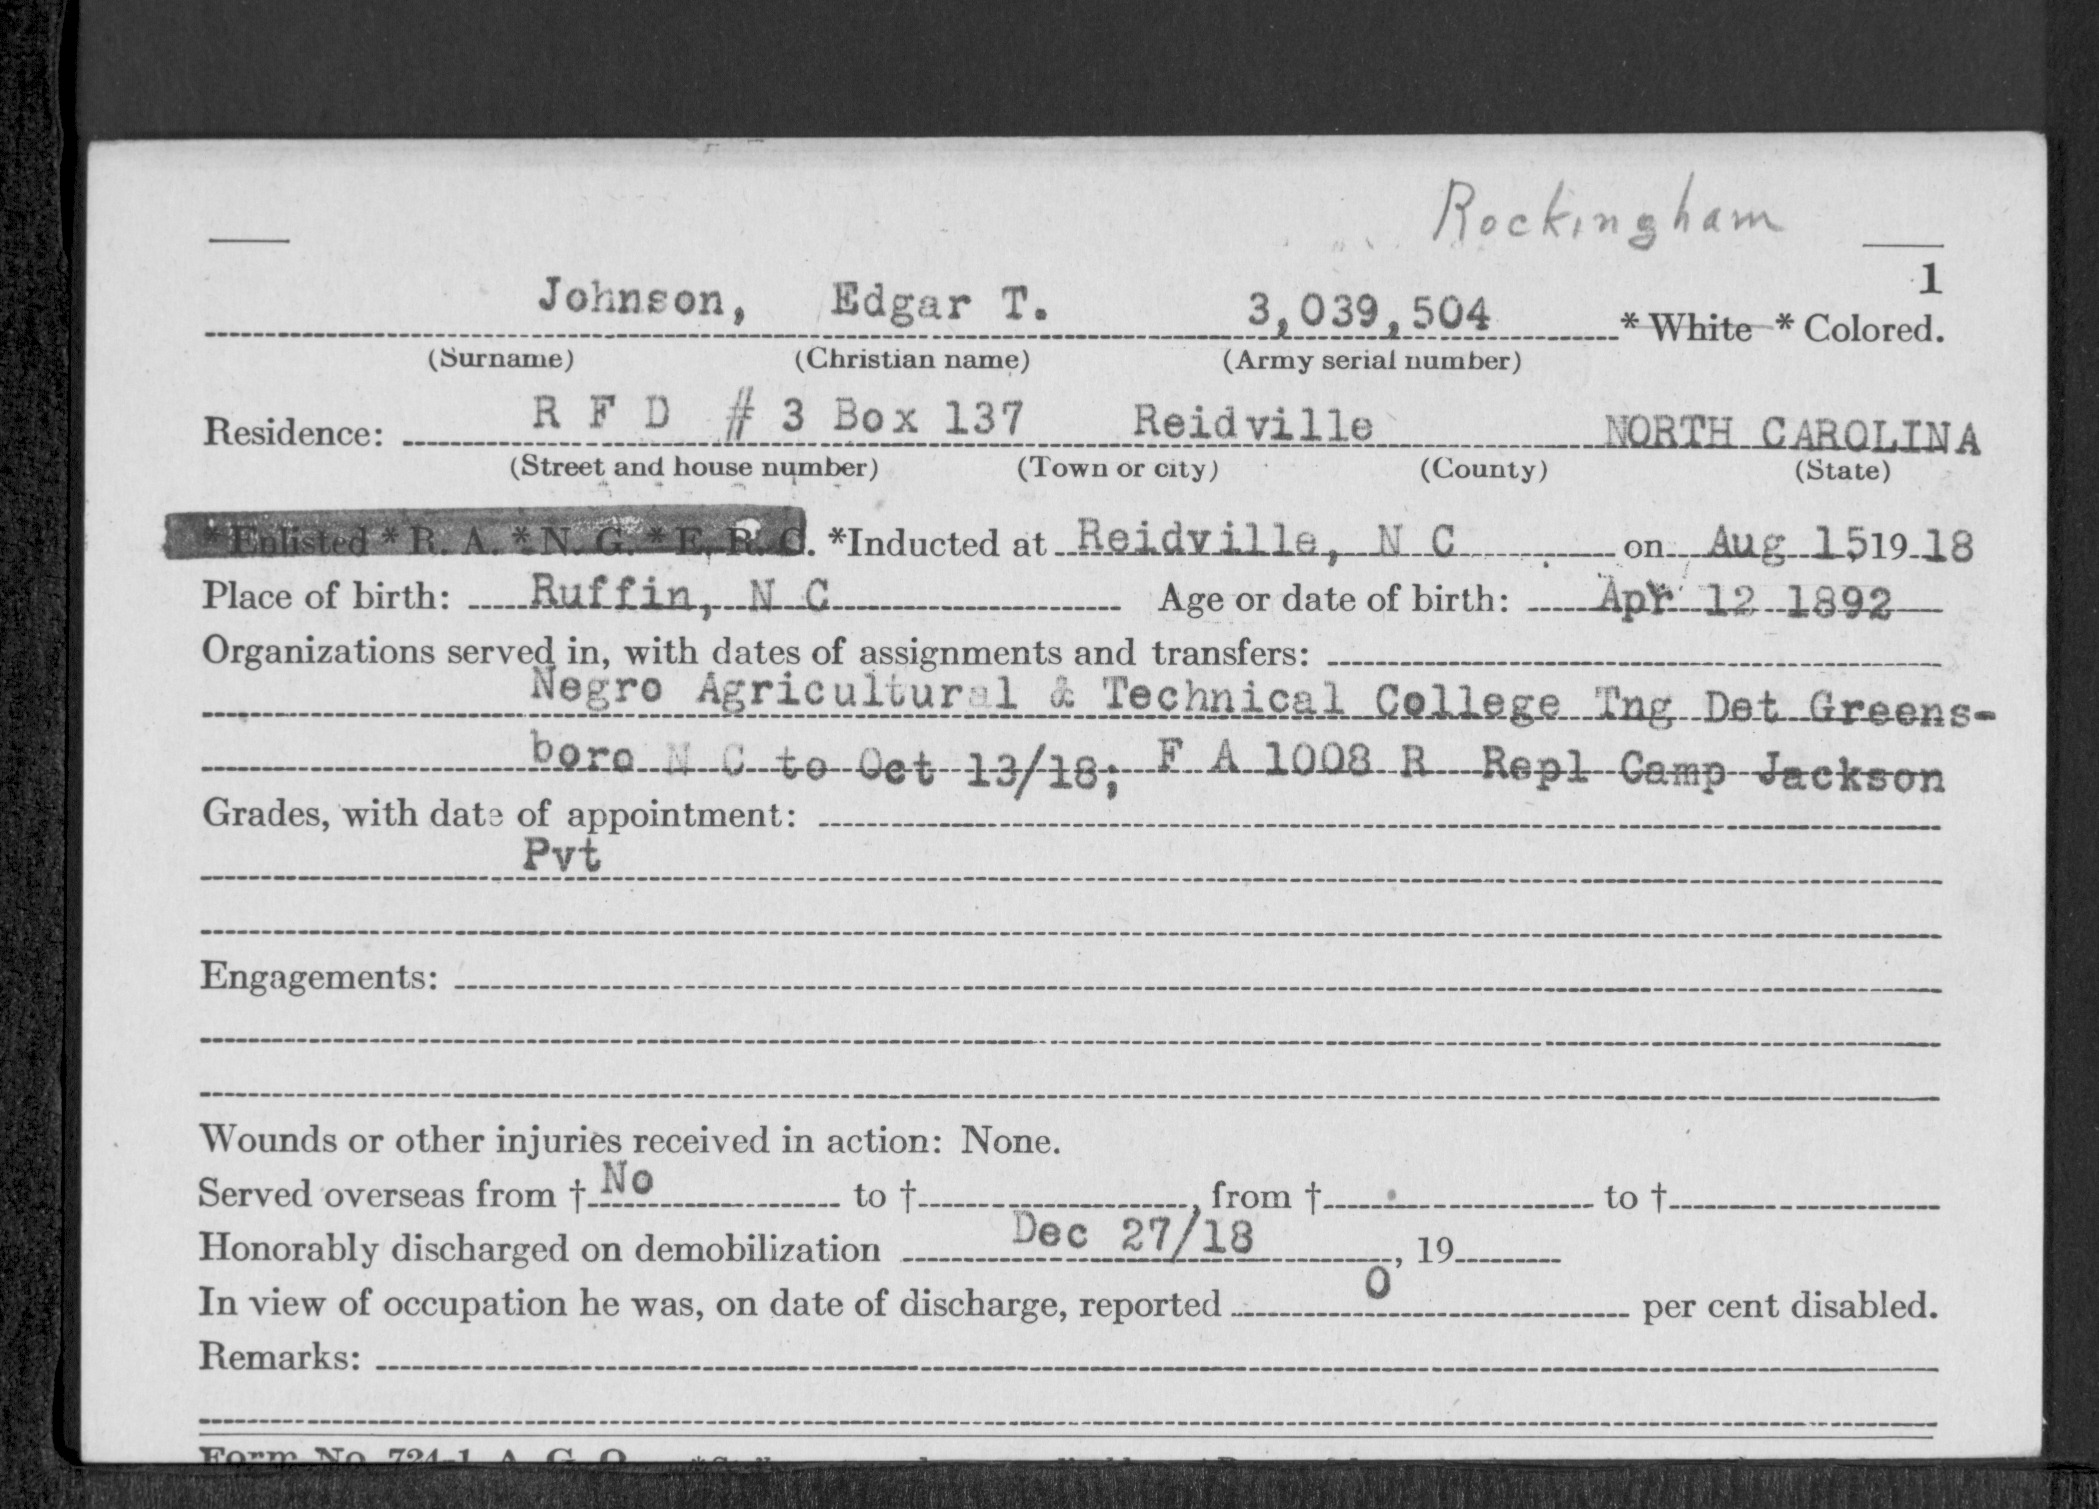 Rockingham
1
Johnson, Edgar T. 3,039,504 * White * Colored.
(Surname) (Christian name) (Army serial number)
Residence: R F D # 3 Box 137 Reidville NORTH CAROLINA
(Street and house number) (Town or city) (County) (State)
* Enlisted * R. A. * N. G. * E. R. C. *Inducted at Reidville, N C on Aug 15 19 18
Place of birth: Ruffin, N C Age or date of birth: Apr 12 1892
Organizations served in, with dates of assignments and transfers:
Negro Agricultural & Technical College Tng Det Greens-
boro N C to Oct 13/18; F A 1008 R Repl Camp Jackson
Grades, with date of appointment:
Pvt
Engagements:
Wounds or other injuries received in action: None.
Served overseas from † No to †, from † to †
Honorably discharged on demobilization Dec 27/18, 19
In view of occupation he was, on date of discharge, reported 0 per cent disabled.
Remarks:
Form No. 724-1, A. G. O.